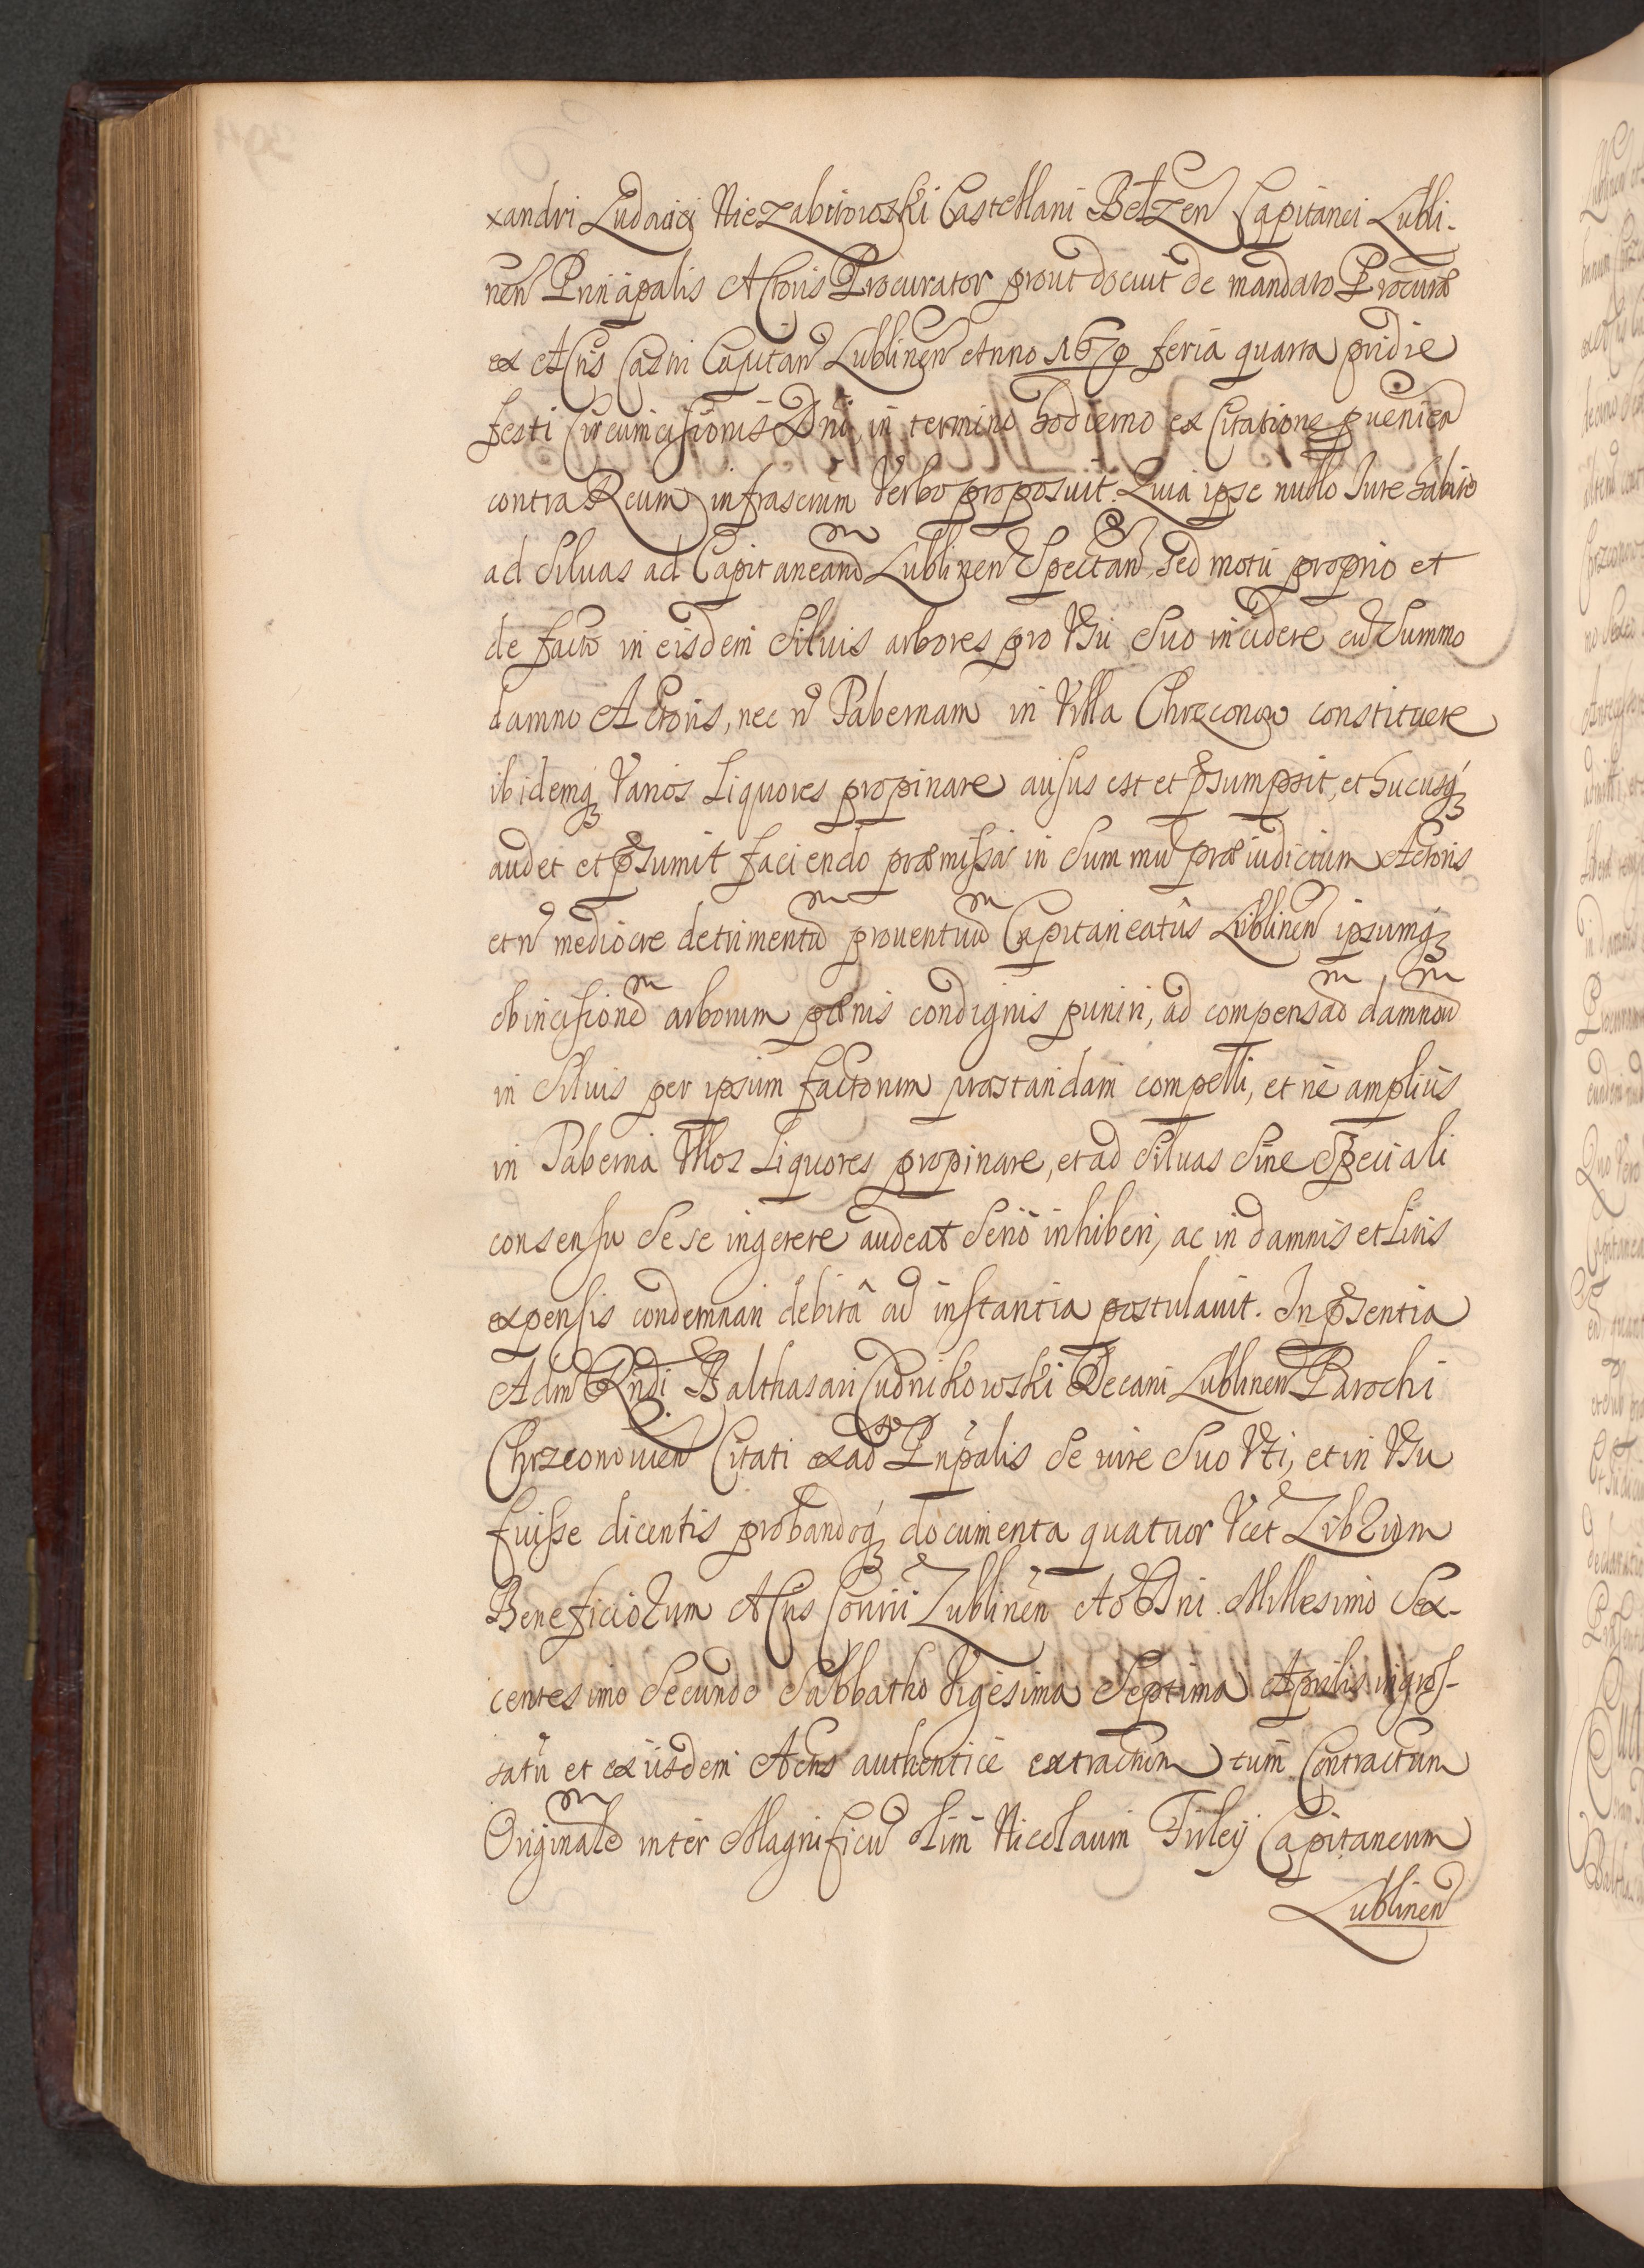 xandri Ludovici Niezabitowski Castellani Bełzen Capitanei Lubli-
nen Principalis Actoris Procurator prout docuit de mandato Procurae
ex Actis Castri Capitan Lublinen Anno 1679 feria quarta pridie
festi Circumcisionis Dni, in termino hodierno ex Citatione pvenien
contra Reum infrascrum Verbo proposuit. Quia ipse nullo Jure habito
ad Siluas ad Capitaneatum Lublinen Spectan, Sed motu proprio et
de facto in eisdem Siluis arbores pro Usu Suo incidere cu Summo
damno Actoris, nec n Tabernam in Villa Chrzconow constituere
ibidemq Varios Liquores propinare ausus est et psumpsit, et hucusq
audet et psumit faciendo praemissa in Summu praeiudicium Actoris
et n mediocre detrimentum prouentuum Capitaneatus Lublinen ipsumq
ob incisionem arborum paenis condignis puniri, ad compensaom damnoru
in Siluis per ipsum factorum praestandam compelli, et ne amplius
in Taberna Ullos Liquores propinare, et ad Siluas Sine Speciali
consensu Sese ingerere audeat Serio inhiberi, ac in damnis et Litis
expensis condemnari debita cu instantia postulauit. In psentia
Adm Rndi Balthasari Cudnikowski Decani Lublinen Parochi
Chrzconowien Citati ex ad Pnpalis Se iure Suo Uti, et in Usu
fuisse dicentis probandoq documenta quatuor Vcet Librum
Beneficiorum Actis Consii Lublinen Ao Dni Millesimo Sex-
centesimo Secundo Sabbatho Vigesima Septima Aprilis ingros-
satu et ex iisdem Actis authentice extractum tum Contractum
Originalem inter Magnificu olim Nicolaum Firleij Capitaneum
Lublinen